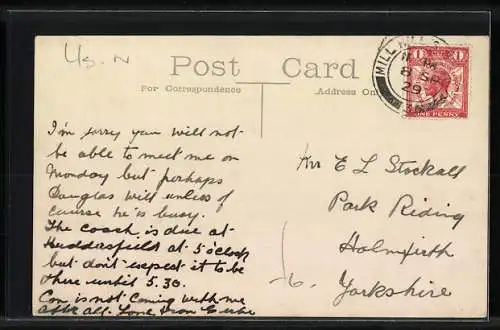 Post Card
For Correspondence
Address On
MILL HILL
8 SP
29
1 1
ONE PENNY
I'm sorry you will not
be able to meet me on
Monday but perhaps
Douglas will unless of
course he is busy.
The coach is due at
Huddersfield at 5 o'clock
but don't expect it to be
there until 5.30.
Con is not coming with me
after all. Love from
E L Stockall
Park Riding
Holmfirth
Yorkshire